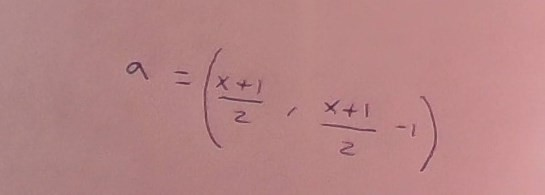 a = (x+1/2 , x+1/2 -1)